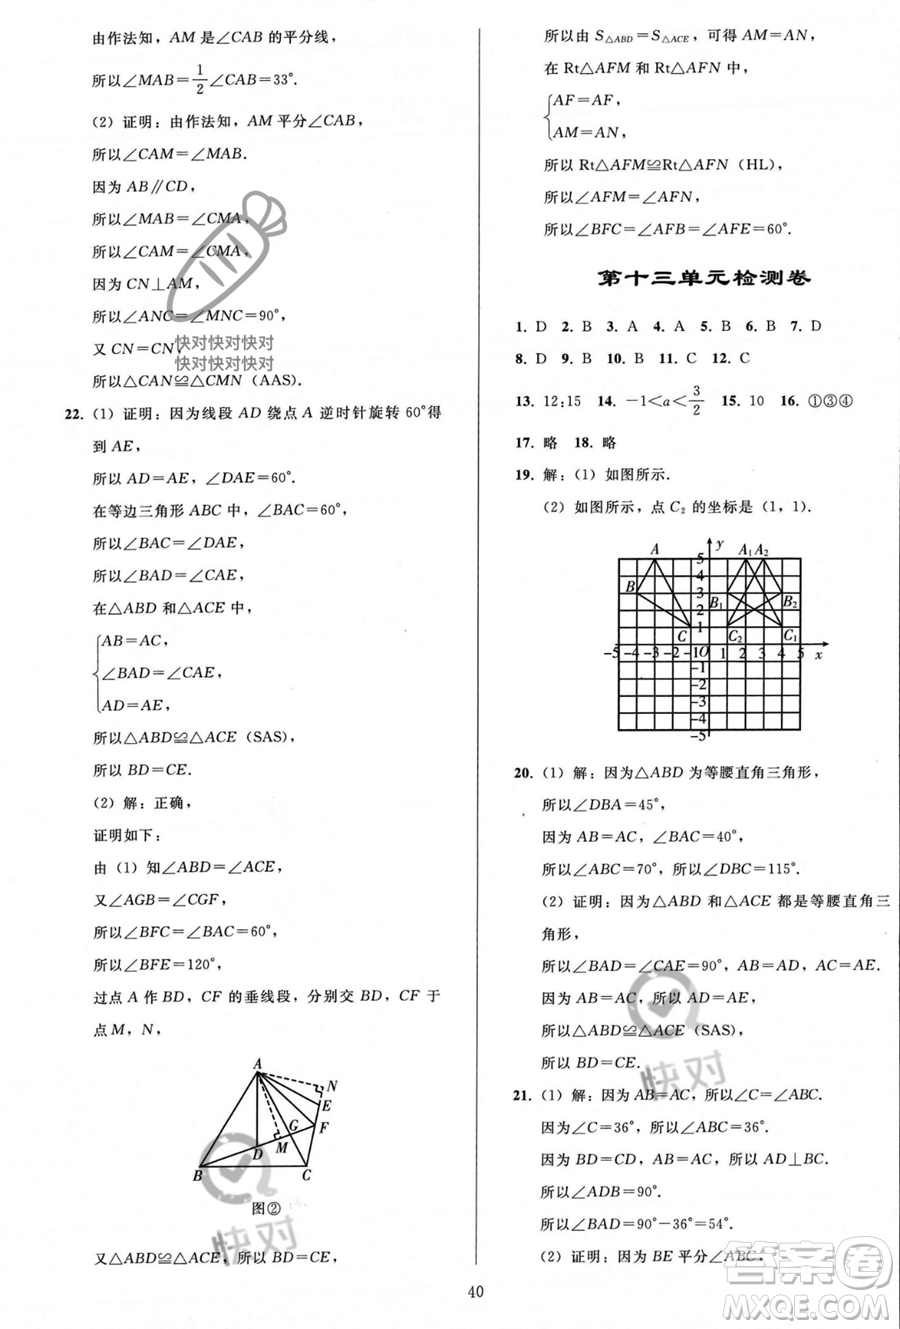 由作法知，AM 是∠CAB 的平分线，
所以∠MAB＝1/2∠CAB＝33°．
（2）证明：由作法知，AM 平分∠CAB，
所以∠CAM＝∠MAB．
因为 AB∥CD，
所以∠MAB＝∠CMA，
所以∠CAM＝∠CMA，
因为 CN⊥AM，
所以∠ANC＝∠MNC＝90°，
又 CN＝CN，
所以△CAN≌△CMN（AAS）．
22.（1）证明：因为线段 AD 绕点 A 逆时针旋转 60°得
到 AE，
所以 AD＝AE，∠DAE＝60°．
在等边三角形 ABC 中，∠BAC＝60°，
所以∠BAC＝∠DAE，
所以∠BAD＝∠CAE，
在△ABD 和△ACE 中，
AB＝AC，
∠BAD＝∠CAE，
AD＝AE，
所以△ABD≌△ACE（SAS），
所以 BD＝CE．
（2）解：正确，
证明如下：
由（1）知∠ABD＝∠ACE，
又∠AGB＝∠CGF，
所以∠BFC＝∠BAC＝60°，
所以∠BFE＝120°，
过点 A 作 BD，CF 的垂线段，分别交 BD，CF 于
点 M，N，
A
N
E
G
F
M
D
B
C
图②
又△ABD≌△ACE，所以 BD＝CE，
所以由 S△ABD＝S△ACE，可得 AM＝AN，
在 Rt△AFM 和 Rt△AFN 中，
AF＝AF，
AM＝AN，
所以 Rt△AFM≌Rt△AFN（HL），
所以∠AFM＝∠AFN，
所以∠BFC＝∠AFB＝∠AFE＝60°．
第十三单元检测卷
1. D 2. B 3. A 4. A 5. B 6. B 7. D
8. D 9. B 10. B 11. C 12. C
13. 12:15 14. －1＜a＜3/2 15. 10 16. ①③④
17. 略 18. 略
19. 解：（1）如图所示．
（2）如图所示，点 C₂ 的坐标是（1，1）．
A 5 y A₁ A₂
4
B 3 B₁ B₂
2
C 1 C₂ C₁
-5 -4 -3 -2 -1 O 1 2 3 4 5 x
-1
-2
-3
-4
-5
20.（1）解：因为△ABD 为等腰直角三角形，
所以∠DBA＝45°，
因为 AB＝AC，∠BAC＝40°，
所以∠ABC＝70°，所以∠DBC＝115°．
（2）证明：因为△ABD 和△ACE 都是等腰直角三
角形，
所以∠BAD＝∠CAE＝90°，AB＝AD，AC＝AE．
因为 AB＝AC，所以 AD＝AE，
所以△ABD≌△ACE（SAS），
所以 BD＝CE．
21.（1）解：因为 AB＝AC，所以∠C＝∠ABC．
因为∠C＝36°，所以∠ABC＝36°．
因为 BD＝CD，AB＝AC，所以 AD⊥BC，
所以∠ADB＝90°，
所以∠BAD＝90°－36°＝54°．
（2）证明：因为 BE 平分∠ABC，
40
快对快对快对
快对快对快对
快对
快对
答案卷
MXQE.COM